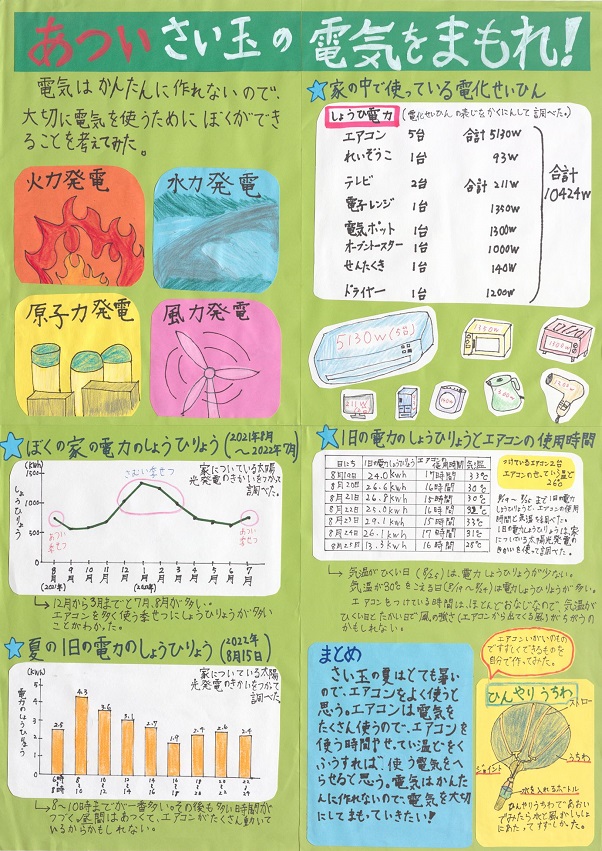 あつい さい玉の 電気をまもれ!
電気は かんたんに作れないので、
大切に電気を使うために ぼくができ
ることを考えてみた。
火力発電
水力発電
原子力発電
風力発電
家の中で使っている電化せいひん
しょうひ電力
エアコン 5台 合計 5130W
れいぞうこ 1台 93W
テレビ 2台 合計 211W
電子レンジ 1台 1350W
電気ポット 1台 1300W
オーブントースター 1台 1000W
せんたくき 1台 140W
ドライヤー 1台 1200W
合計
10424W
5130W(5台)
1350W
ぼくの家の電力のしょうひりょう (2021年8月
~2022年7月)
(kWh)
しょうひりょう
1500
1000
500
0
さむい季せつ
家についている太陽
光発電のきかいをつかって
調べた。
あつい
季せつ
あつい
季せつ
8月 9月 10月 11月 12月 1月 2月 3月 4月 5月 6月 7月
(2021年)
12月から3月までと7月、8月が多い。
エアコンを多く使う季せつにしょうひりょうが多い
ことがわかった。
夏の1日の電力のしょうひりょう (2022年
8月15日)
(kWh)
電力のしょうひりょう
家についている太陽
光発電のきかいをつかって
調べた
5
4
3
2
1
0
2.5
4.3
3.6
3.1
2.7
1.9
2.4
2.6
2.4
8~10時までが一番多い。その後も多い時間が
つづく。昼間はあつくて、エアコンがたくさん動いて
いるからかもしれない。
1日の電力のしょうひりょうとエアコンの使用時間
日にち 1日の電力しょうひりょう エアコンの使用時間 気温
8月19日 24.0kwh 17時間 33℃
8月20日 26.6kwh 16時間 30℃
8月21日 26.8kwh 15時間 30℃
8月22日 25.0kwh 16時間 32℃
8月23日 29.1kwh 15時間 33℃
8月24日 26.1kwh 17時間 31℃
8月25日 13.3kwh 16時間 28℃
つけているエアコン2台
エアコンのせってい温ど
26℃
8/19~8/25まで1日の電力
しょうひりょうと、エアコンの使用
時間と気温を調べた。
1日の電力しょうひりょうは、家
についている太陽光発電の
きかいを使って調べた。
気温がひくい日(8/25)は、電力しょうひりょうが少ない。
気温が30℃をこえる日(8/19~8/24)は電力しょうひりょうが多い。
エアコンをつけている時間は、ほとんどおなじなので、気温が
ひくい日とたかい日で「風の強さ(エアコンから出てくる風)」がちがうの
かもしれない。
まとめ
さい玉の夏はとても暑い
ので、エアコンをよく使うと
思う。エアコンは電気を
たくさん使うので、エアコンを
使う時間やせってい温どをく
ふうすれば、使う電気をへ
らせると思う。電気はかんた
んに作れないので、電気を大切
にしてまもっていきたい!
エアコンいがいのもの
ですずしくできるものを
自分で作ってみた。
ひんやりうちわ
ストロー
うちわ
ジョイント
水を入れるボトル
ひんやりうちわであおい
でみたら水と風がいっしょ
にあたってすずしかった。